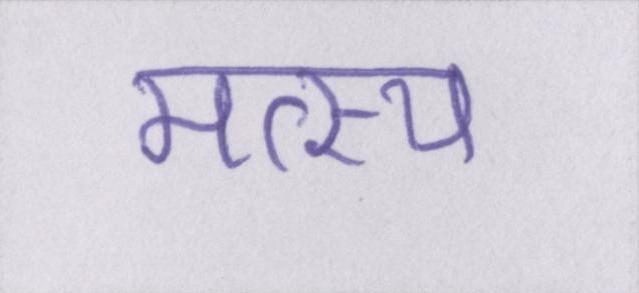 मत्स्य